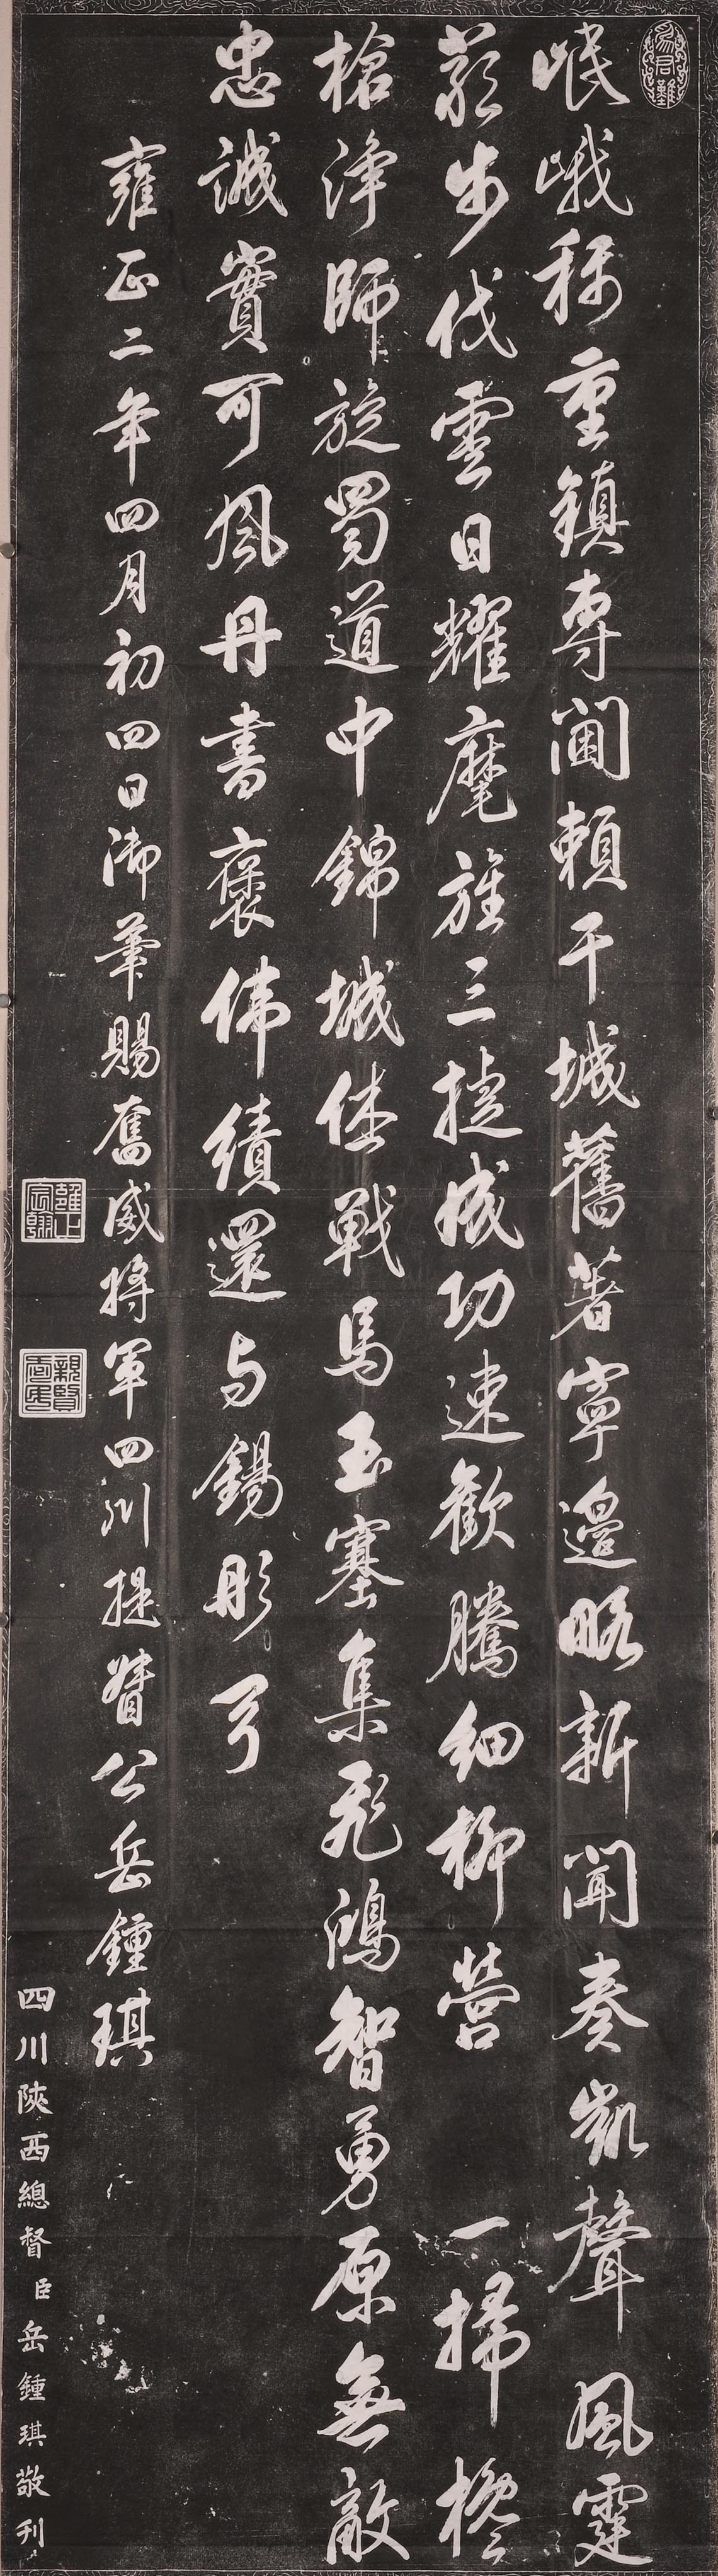 為君難
岷峨称重鎮專閫賴干城舊著寧邊略新聞奏凱聲風霆
嚴步伐雲日耀麾旌三捷成功速歡騰細柳營一掃欃
槍淨師旋蜀道中錦城休戰馬玉塞集飛鴻智勇原無敵
忠誠實可風丹書褒偉績還与錫彤弓
雍正二年四月初四日御筆賜奮威將軍四川提督公岳鍾琪
雍正宸翰
親賢
四川陝西總督臣岳鍾琪敬刊